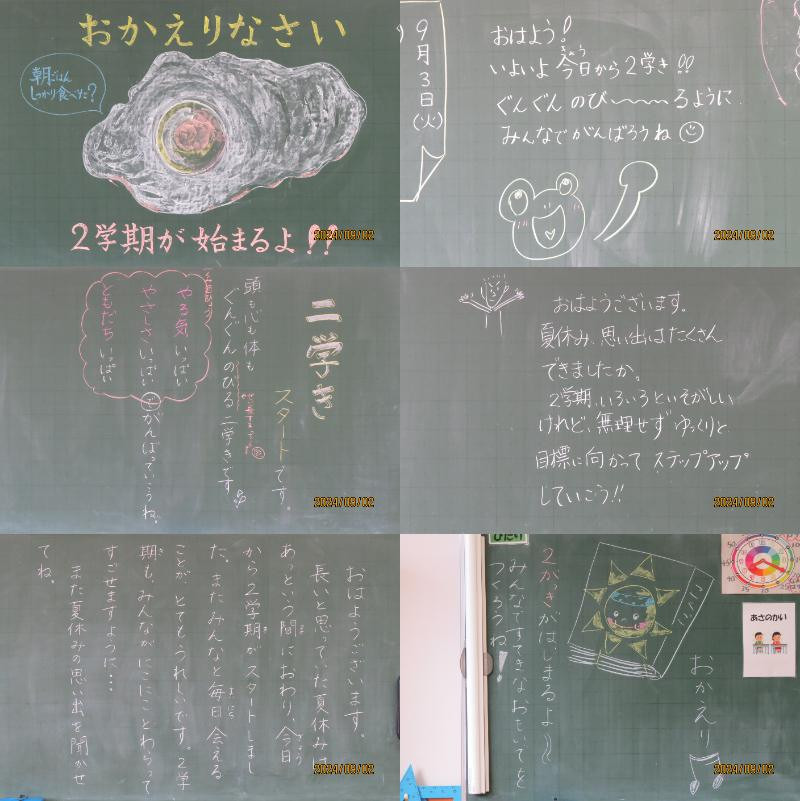 おかえりなさい
朝ごはん
しっかり食べた?
2学期が始まるよ!!
2024/09/02
9月3日(火)
おはよう!
いよいよ今日から2学き!!
きょう
ぐんぐんのび〜〜〜るように
みんなでがんばろうね
2024/09/02
二学き
スタートです。
頭も心も体も
ぐんぐんのびる二学きです
やる気いっぱい
やさしさいっぱい
ともだちいっぱい
がんばっていこうね。
2024/09/02
おはようございます。
夏休み、思い出はたくさん
できましたか。
2学期、いろいろといそがしい
けれど、無理せずゆっくりと
目標に向かってステップアップ
していこう!!
2024/09/02
おはようございます。
長いと思っていた夏休みは
あっという間におわり、今日
から2学期がスタートしまし
た。またみんなと毎日会える
ことがとてもうれしいです。2学
期も、みんながにこにことわらって
すごせますように…
また夏休みの思い出を聞かせ
てね。
2024/09/02
ひだり
おかえり
2がっきがはじまるよ
みんなですてきなおもいでを
つくろうね!
あさのかい
2024/09/02